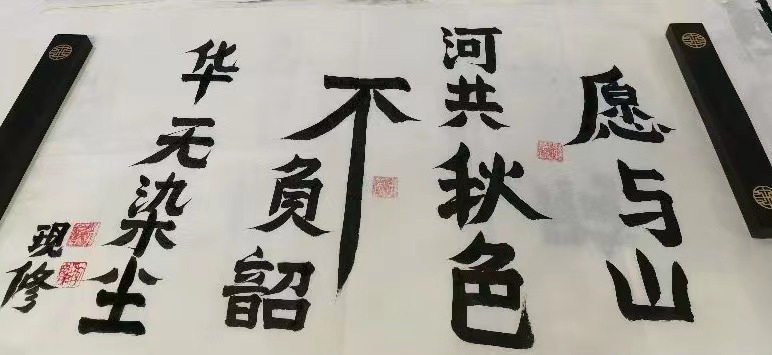 愿与山
河共秋色
不负韶
华无染尘
现修